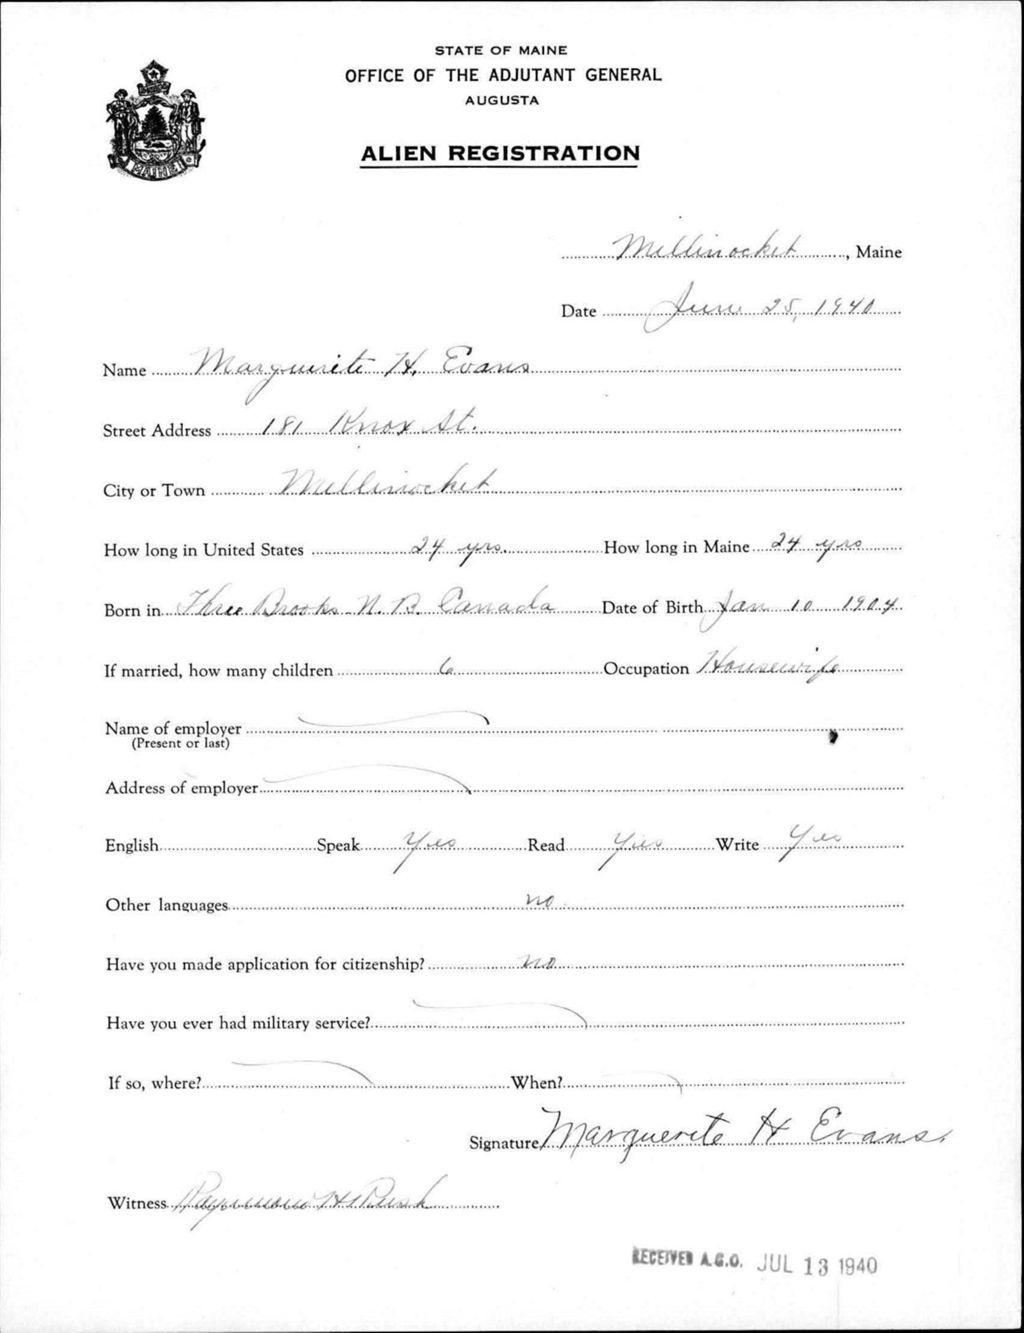 STATE OF MAINE
OFFICE OF THE ADJUTANT GENERAL
AUGUSTA
ALIEN REGISTRATION
MAINE
Millinocket, Maine
Date June 25, 1940
Name Marguerite H. Evans
Street Address 181 Knox St.
City or Town Millinocket
How long in United States 24 yrs. How long in Maine 24 yrs
Born in Three Brooks N. B. Canada Date of Birth Jan 10 1904
If married, how many children 6 Occupation Housewife
Name of employer
(Present or last)
Address of employer
English Speak Yes Read Yes Write Yes
Other languages no.
Have you made application for citizenship? no
Have you ever had military service?
If so, where? When?
Signature Marguerite H Evans.
Witness Raymond H Rush
RECEIVED A.G.O. JUL 13 1940